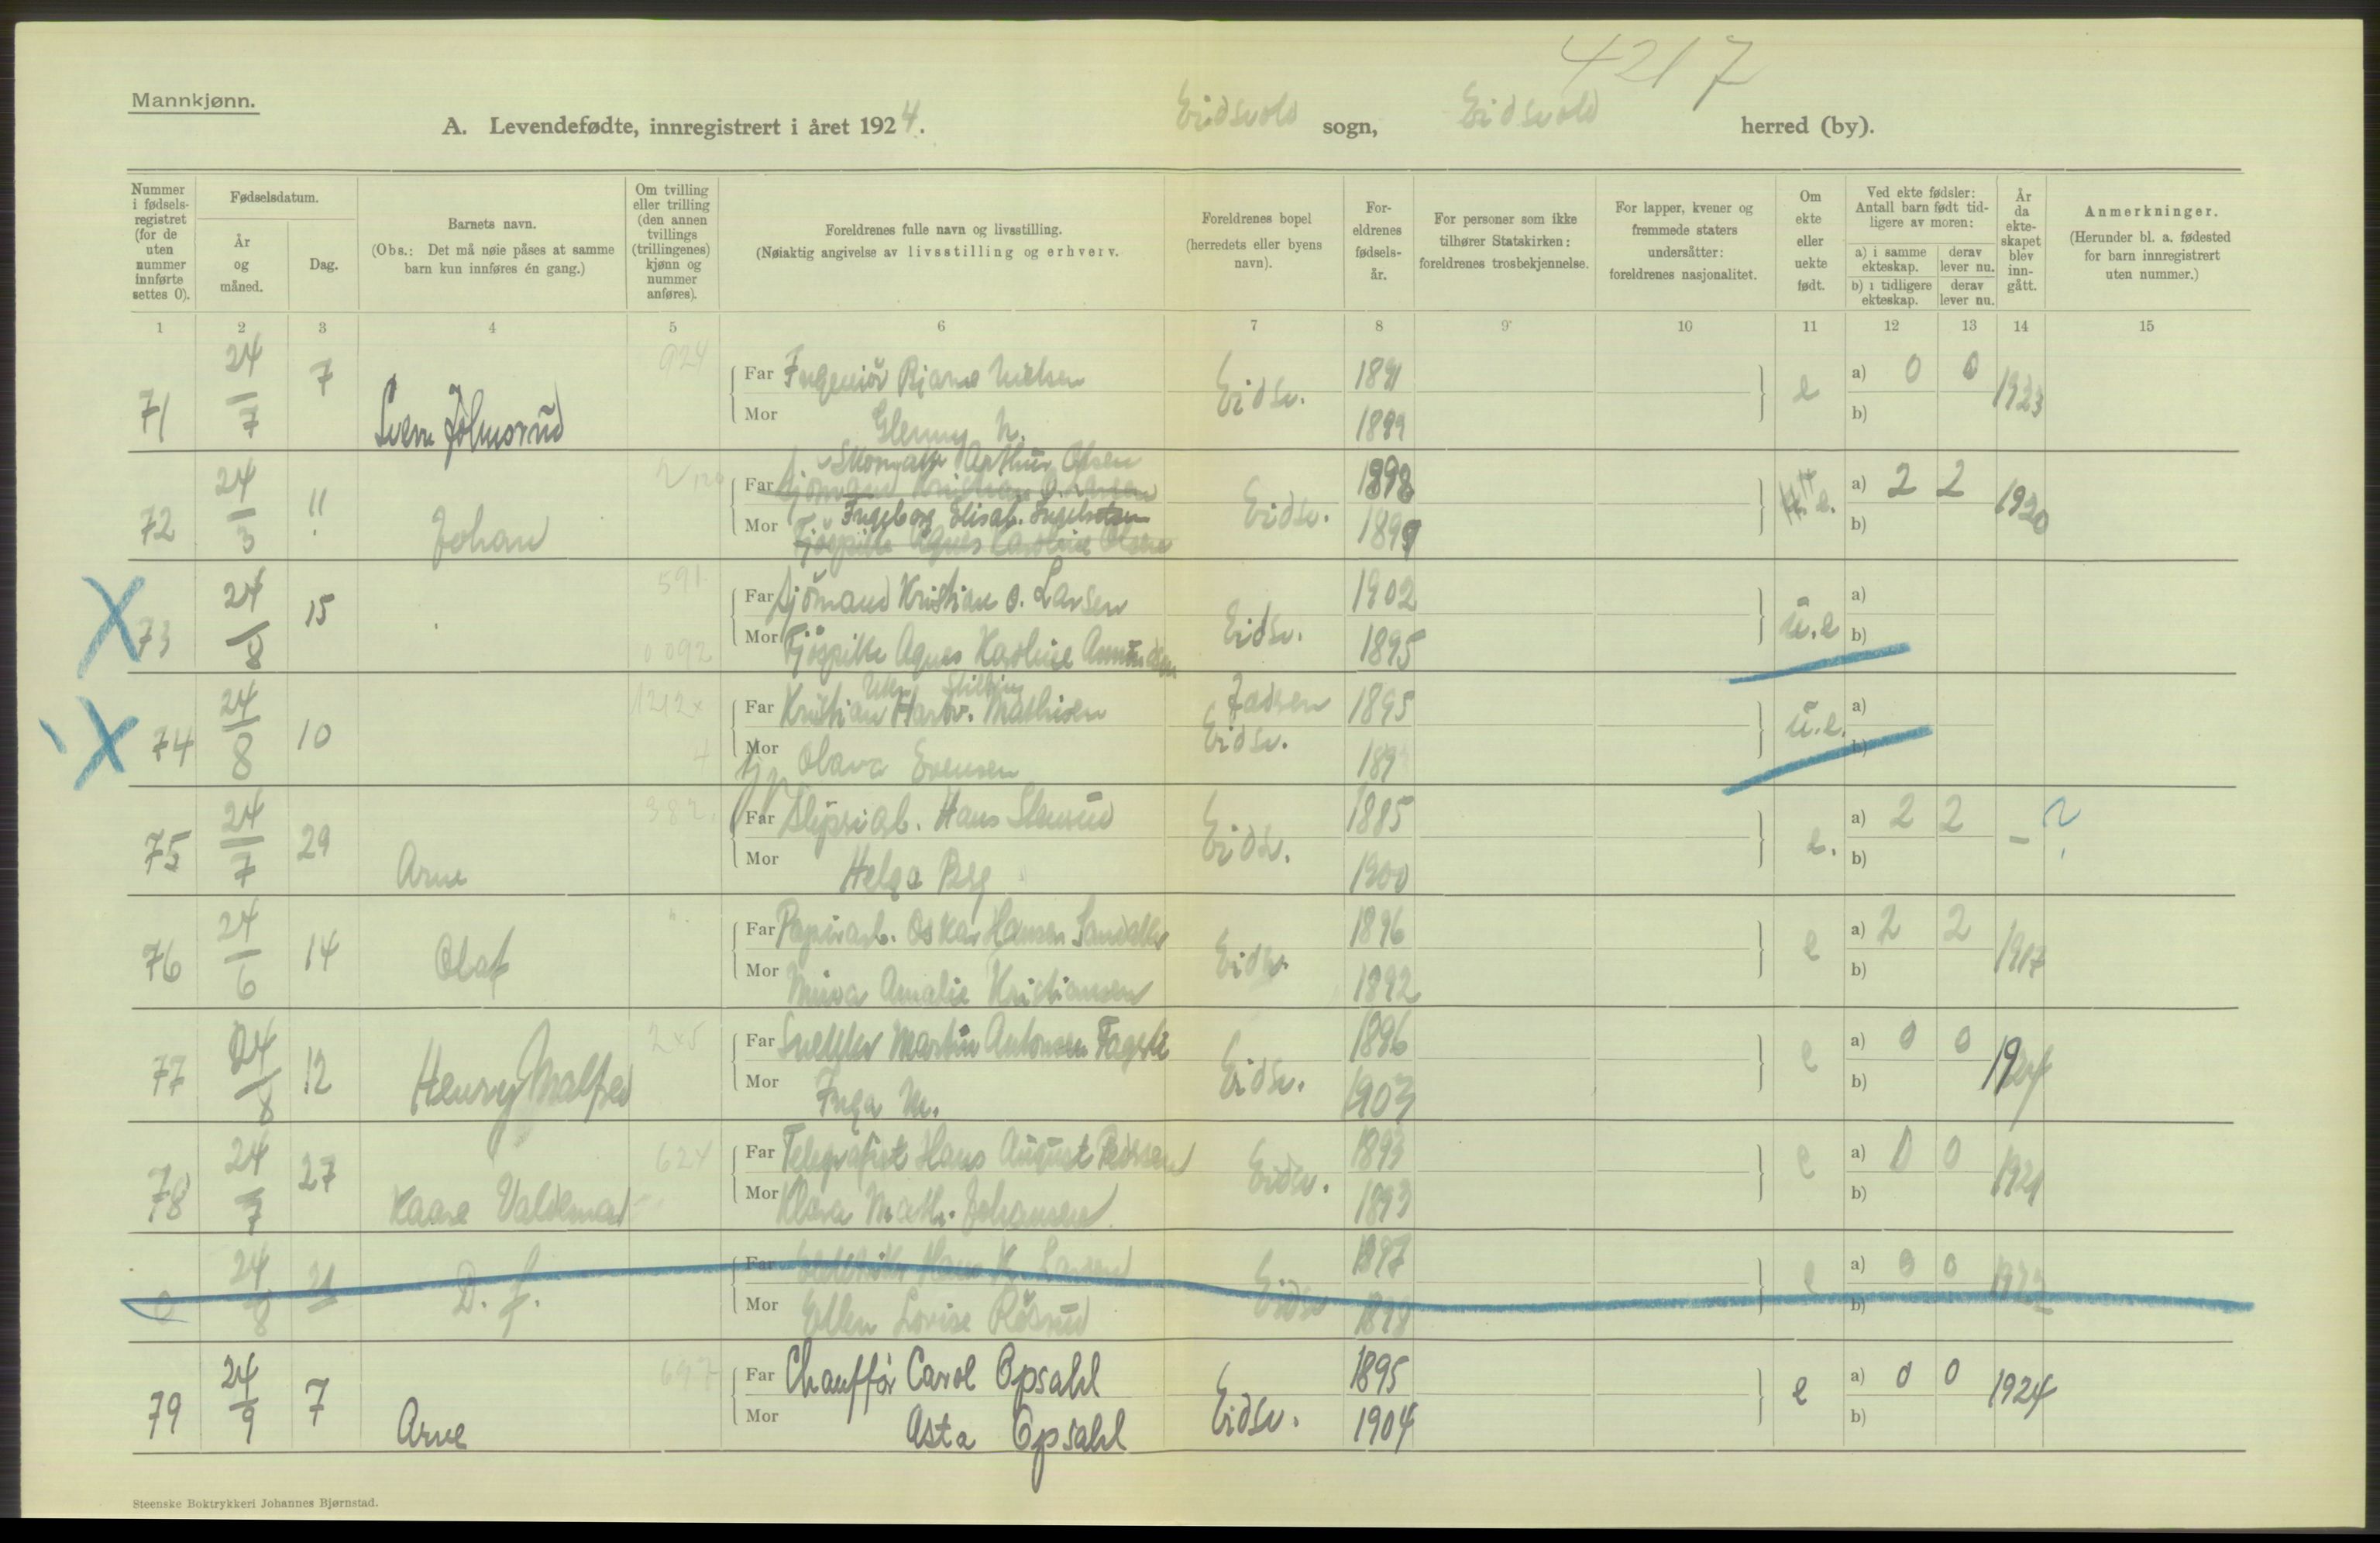 4217
Mannkjønn.
A. Levendefødte, innregistrert i året 1924. Eidsvold sogn, Eidsvold herred (by).
Nummer i fødsels-registret (for de uten nummer innførte settes 0).
Fødselsdatum.
År og måned.
Dag.
Barnets navn.
(Obs.: Det må nøie påses at samme barn kun innføres én gang.)
Om tvilling eller trilling (den annen tvillings (trillingenes) kjønn og nummer anføres).
Foreldrenes fulle navn og livsstilling.
(Nøiaktig angivelse av livsstilling og erhverv.
Foreldrenes bopel (herredets eller byens navn).
For-eldrenes fødsels-år.
For personer som ikke tilhører Statskirken: foreldrenes trosbekjennelse.
For lapper, kvener og fremmede staters undersåtter: foreldrenes nasjonalitet.
Om ekte eller uekte født.
Ved ekte fødsler: Antall barn født tid-ligere av moren:
a) i samme ekteskap. derav lever nu.
b) i tidligere ekteskap. derav lever nu.
År da ekte-skapet blev inn-gått.
Anmerkninger.
(Herunder bl. a. fødested for barn innregistrert uten nummer.)
1 2 3 4 5 6 7 8 9 10 11 12 13 14 15
71 24/7 7 924 Far Ingeniør Bjarne Nielsen Eidsv. 1891 e a) 0 0 1923
Mor Glenny N. 1899 b)
72 24/3 11 Johan Skomaker Arthur Olsen
Far Sjømand Kristian O. Larsen Eidsv. 1898 e. a) 2 2 1920
Ingeborg Elisab. Ingebretsen
Mor Agnes Karoline Olsen 1899 b)
X 73 24/8 15 591 Far Sjömand Kristian O. Larsen Eidsv. 1902 u.e a)
0092 Mor Agnes Karoline Amundsen 1895 b)
X 74 24/8 10 1212 Far Kristian Hartv. Mathisen 1895 u.e. a)
4 Mor Olava Evensen Eidsv. b)
75 24/7 29 Arne 382 Far Hans Eidsv. 1885 e. a) 2 2 - ?
Mor Helga Berg 1900 b)
76 24/6 14 Olaf Far Papirarb. Oskar Hansen Eidsv. 1896 e a) 2 2 1917
Mor Amalie Kristiansen 1892 b)
77 24/8 12 Henry Malfred Far Snekker Martin Antonsen Eidsv. 1896 e a) 0 0 1924
Mor Inga M. 1903 b)
78 24/7 27 Kaare Valdemar 624 Far Telegrafist Hans August Pedersen Eidsv. 1893 e a) 0 0 1921
Mor Klara Math. Johansen 1893 b)
0 24/8 21 D. f. Far Hans K. Larsen Eidsv 1897 e a) 0 0
Mor Ellen Lovise Røsrud 1898 b)
79 24/9 7 Arne 697 Far Chauffør Carol Opsahl Eidsv. 1895 e a) 0 0 1924
Mor Asta Opsahl 1904 b)
Steenske Boktrykkeri Johannes Bjørnstad.